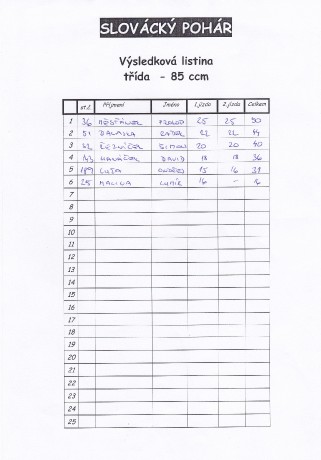 SLOVÁCKÝ POHÁR
Výsledková listina
třída - 85 ccm
st.č. Příjmení Jméno 1.jízda 2.jízda Celkem
1 36 25 25 50
2 51 RADEK 22 22 44
3 ŘEZNÍČEK ŠIMON 20 20 40
4 HANÁČEK DAVID 18 18 36
5 189 ONDŘEJ 15 16 31
6 25 16 -
7
8
9
10
11
12
13
14
15
16
17
18
19
20
21
22
23
24
25